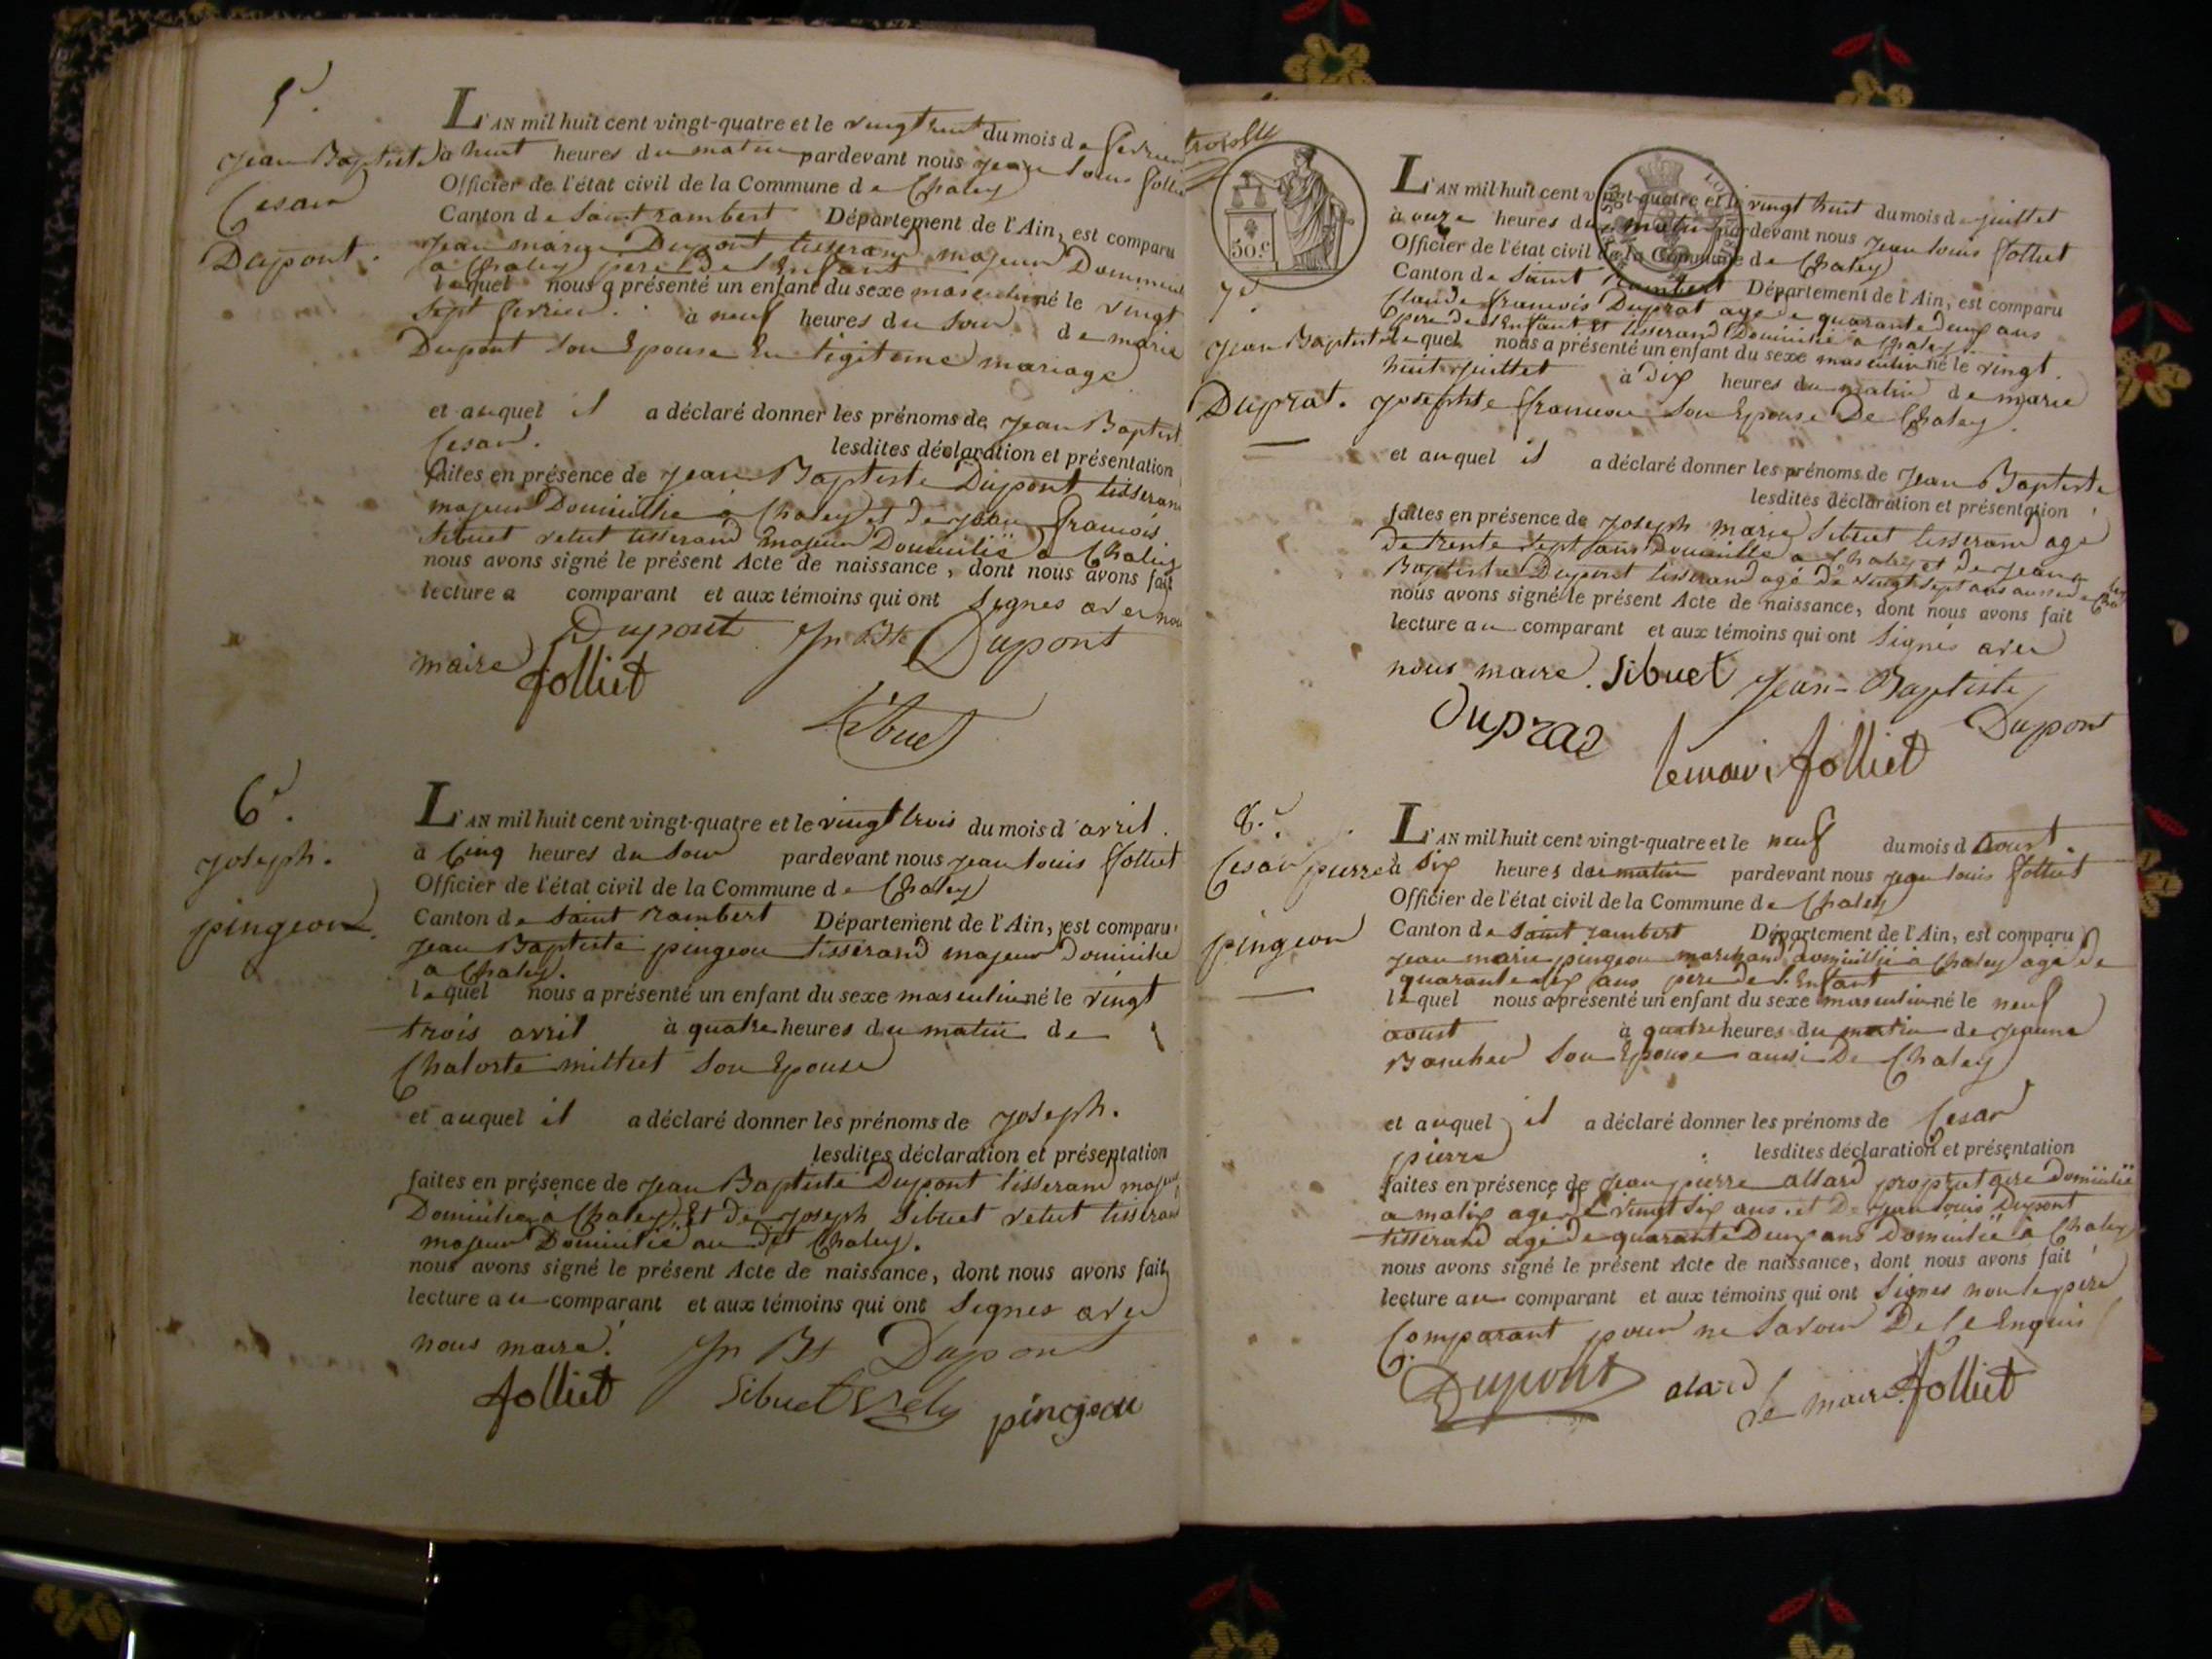 5e.
Jean Baptiste
Cesar
Dupont.
L'AN mil huit cent vingt-quatre et le vingt huit du mois de fevrier
à huit heures du matin pardevant nous Jean Louis Jolliet
Officier de l'état civil de la Commune de Chaley
Canton de Saint rambert Département de l'Ain, est comparu
Jean marie Dupont tisserand majeur Domicilié
a Chaley pere de l'Enfant
lequel nous a présenté un enfant du sexe masculin né le vingt
sept fevrier. à neuf heures du Soir de marie
Dupont Son Epouse En légitime mariage
et auquel il a déclaré donner les prénoms de Jean Baptist
Cesar. lesdites déclaration et présentation
faites en présence de Jean Baptiste Dupont tisseran
majeur Domicilié à Chaley et de Jean François
Sibuet velut tisserand majeur Domicilié a Chaley
nous avons signé le présent Acte de naissance, dont nous avons fait
lecture a comparant et aux témoins qui ont Signes avec nou
maire Dupont Jn Bte Dupont
Jolliet
Sibuet
6e.
Joseph.
pingeon.
L'AN mil huit cent vingt-quatre et le vingt trois du mois d'avril.
à Cinq heures du Soir pardevant nous Jean Louis Jolliet
Officier de l'état civil de la Commune de Chaley
Canton de Saint rambert Département de l'Ain, est comparu
Jean Baptiste pingeon tisserand majeur Domicilie
a Chaley.
lequel nous a présenté un enfant du sexe masculin né le vingt
trois avril à quatre heures du matin de
Chalorte milliet Son Epouse
et auquel il a déclaré donner les prénoms de Joseph.
lesdites déclaration et présentation
faites en présence de Jean Baptiste Dupont tisserand majeur
Domicilié à Chaley Et de Joseph Sibuet velut tisserand
majeur Domicilié au dit Chaley.
nous avons signé le présent Acte de naissance, dont nous avons fait
lecture au comparant et aux témoins qui ont Signes avec
nous maire. Jn Bt Dupont
Jolliet Sibuet pingeon
50 c
7e.
Jean Baptiste
Duprat.
L'AN mil huit cent vingt-quatre et le vingt huit du mois de juillet
à onze heures du matin pardevant nous Jean Louis Jolliet
Officier de l'état civil de la Commune de Chaley
Canton de Saint rambert Département de l'Ain, est comparu
Claude françois Duprat agé de quarante deux ans
pere de l'Enfant et tisserand Domicilié à Chaley
lequel nous a présenté un enfant du sexe masculin né le vingt
huit juillet à dix heures du matin de marie
Josephte Son Epouse De Chaley.
et auquel il a déclaré donner les prénoms de Jean Baptiste
lesdites déclaration et présentation
faites en présence de Joseph marie Sibuet tisserand agé
de trente sept ans Domicilié a Chaley et de Jean
Baptiste Dupont tisserand agé de vingt sept ans aussi de Chaley
nous avons signé le présent Acte de naissance, dont nous avons fait
lecture au comparant et aux témoins qui ont Signés avec
nous maire. Sibuet Jean-Baptiste
Dupraz Dupont
le maire Jolliet
8e.
Cesar pierre
pingeon
L'AN mil huit cent vingt-quatre et le neuf du mois d'Aoust.
à Six heures du matin pardevant nous Jean Louis Jolliet
Officier de l'état civil de la Commune de Chaley
Canton de Saint rambert Département de l'Ain, est comparu
Jean marie pingeon marchand domicilié à Chaley agé de
quarante six ans pere de l'Enfant
lequel nous a présenté un enfant du sexe masculin né le neuf
aoust à quatre heures du matin de Jeanne
Son Epouse aussi De Chaley
et auquel il a déclaré donner les prénoms de Cesar
pierre lesdites déclaration et présentation
faites en présence de Jean pierre allard propriétaire Domicilié
a malix agé de vingt Six ans et De Jean Louis Dupont
tisserand agé de quarante Deux ans Domicilié à Chaley
nous avons signé le présent Acte de naissance, dont nous avons fait
lecture au comparant et aux témoins qui ont Signes non le pere
Comparant pour ne Savoir De ce Enquis
Dupont alard le maire Jolliet